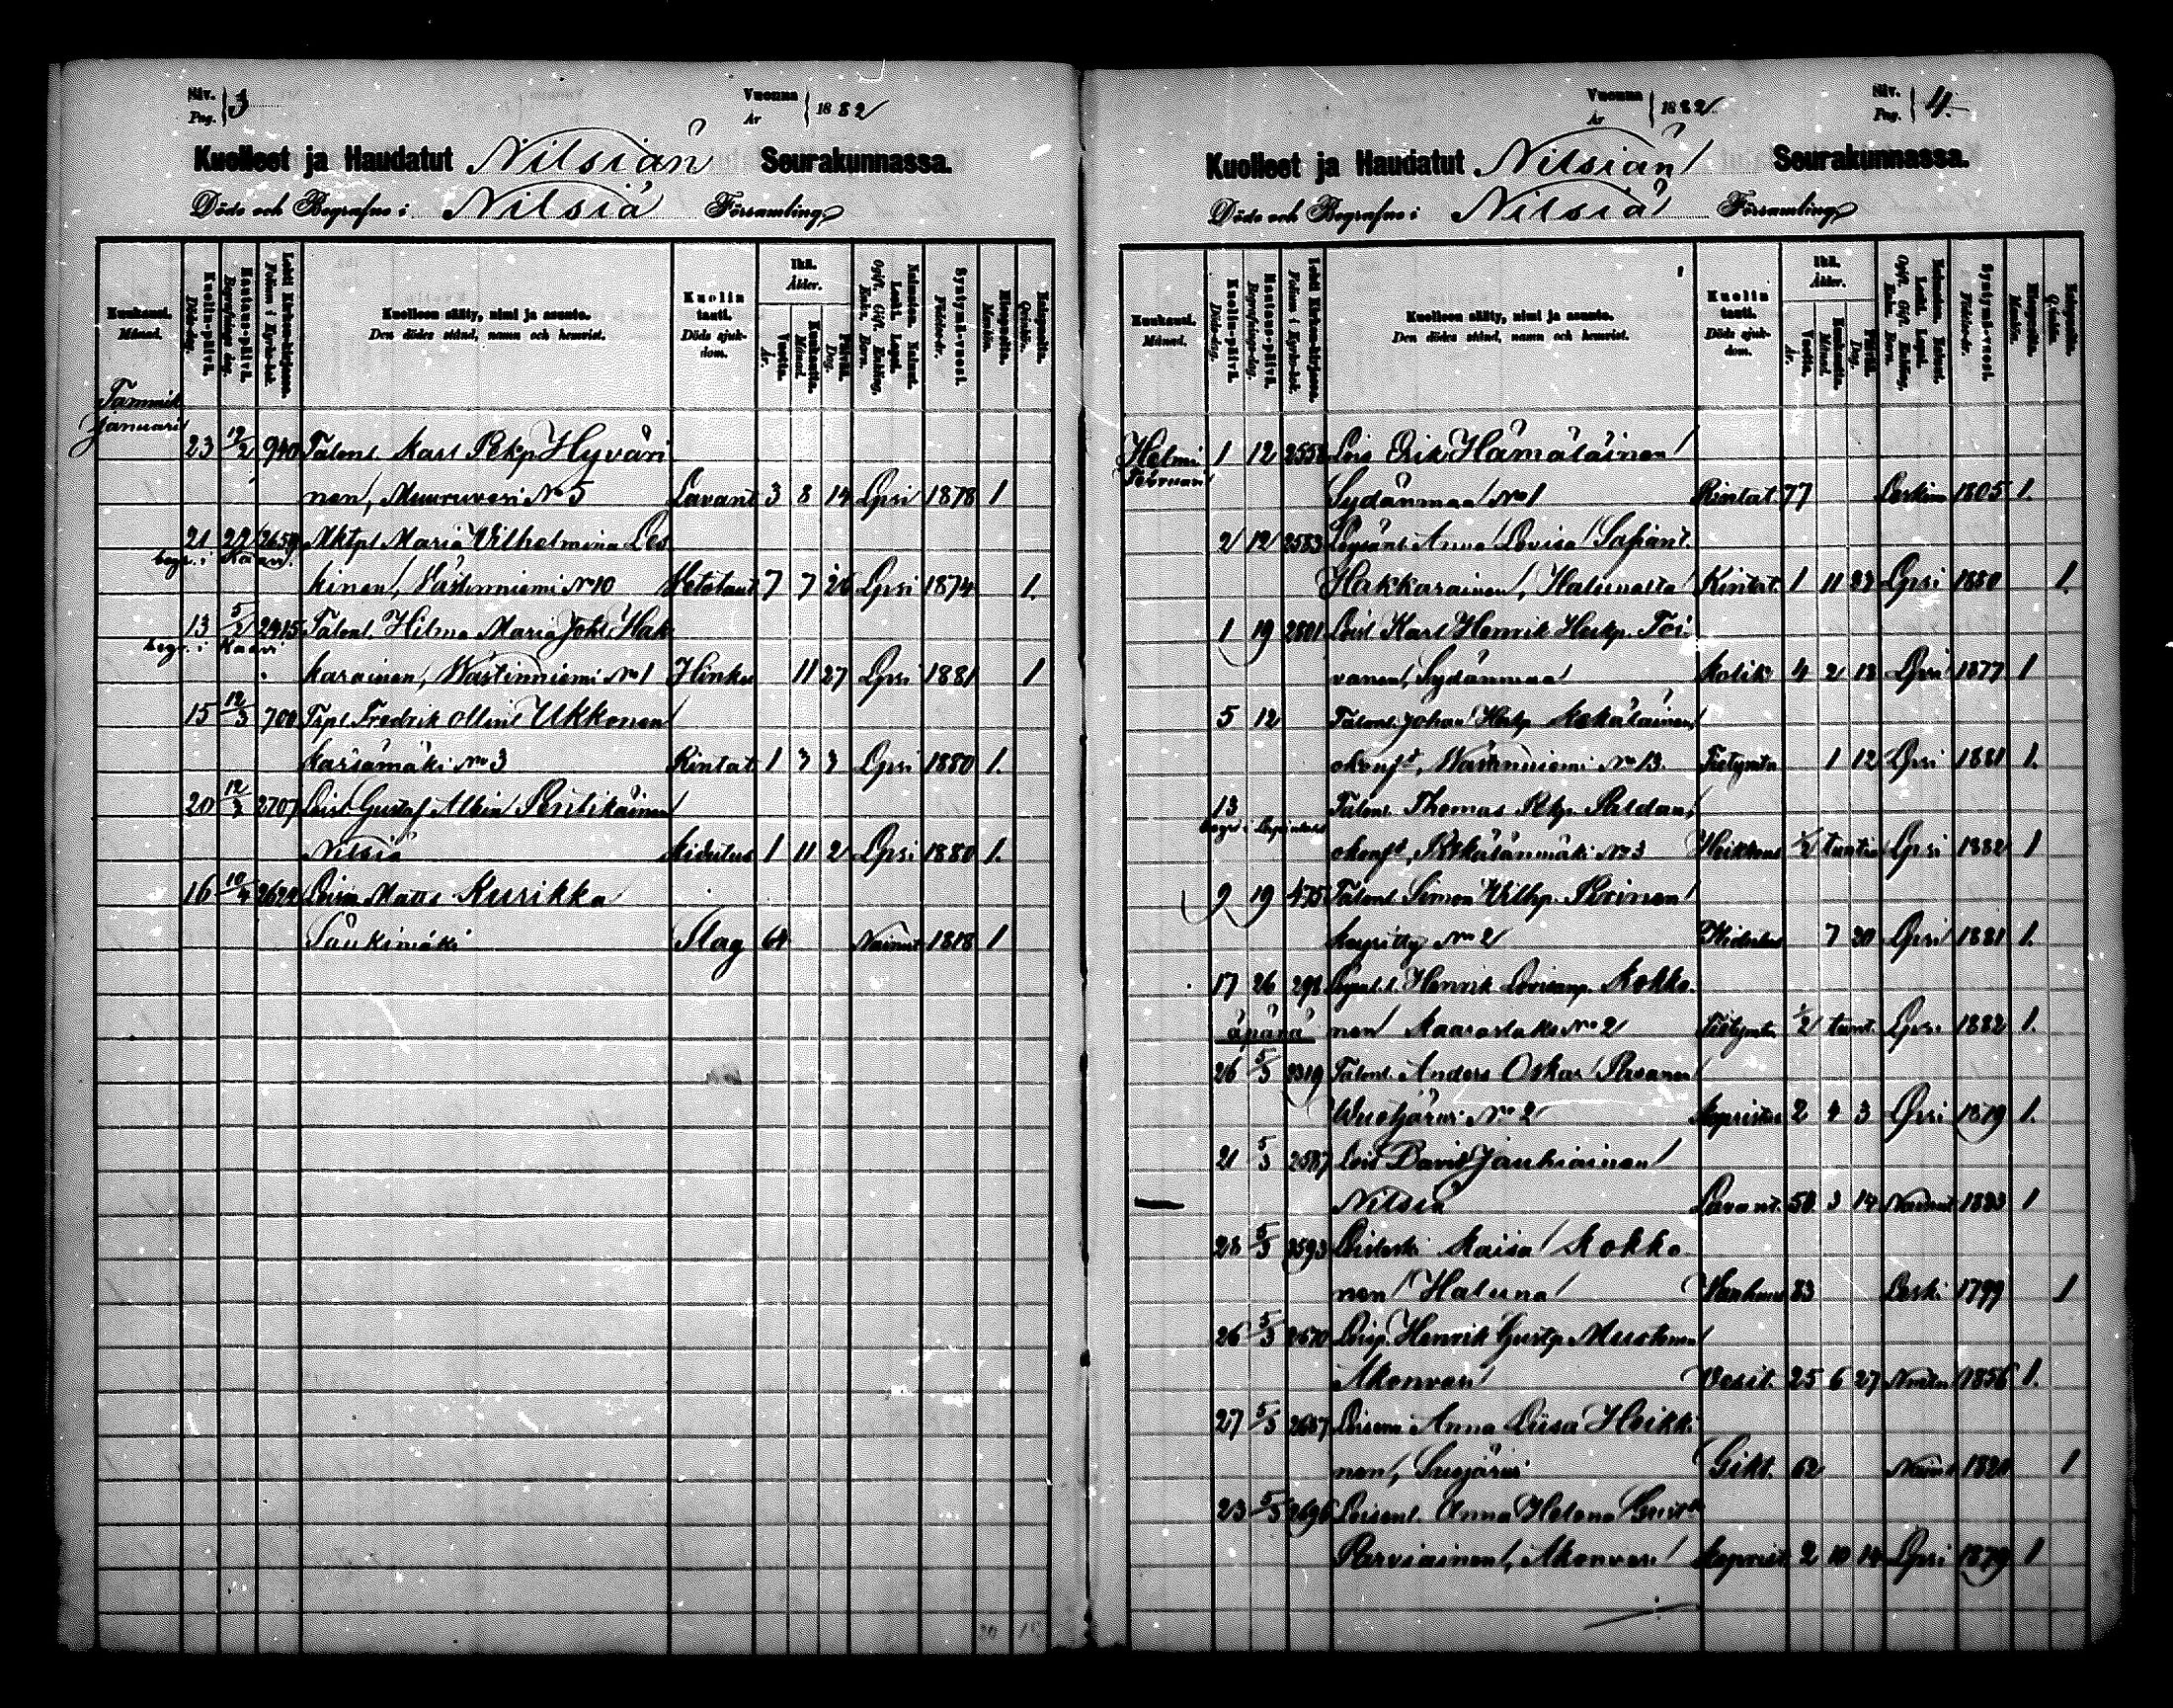 Siv. Pag. 3
Vuonna År 1882
Kuolleet ja Haudatut Nilsiän Seurakunnassa.
Döde och Begrafne i Nilsiä Församling
Kuukausi. Månad.
Kuolin-päivä. Döds-dag.
Hautaus-päivä. Begrafnings-dag.
Lehti Kirkon-kirjassa. Folium i Kyrko-bok.
Kuolleen sääty, nimi ja asunto.
Den dödes stånd, namn och hemvist.
Kuolin tauti. Döds sjukdom.
Ikä. Ålder.
Vuotta. År.
Kuukautta. Månad.
Päivää. Dag.
Syntymä-vuosi. Födelse-år.
Miespuolia. Mankön.
Vaimopuolia. Qvinkön.
Tammik
Januari
23 12/2 940 Talonl. Karl Pekp Hyväri
nen, Muuruvesi No 5 Lavant 3 8 14 Lpsi 1878 1
21 22 2659 Mktpl Maria Vilhelmina Les
begr. i Kaavi
kinen, Västinniemi No 10 Vetotaut 7 7 26 Lpsi 1874 1.
13 2415 Talonl. Hilma Maria Johl Hak
begr. i Kaavi
karainen, Wästinniemi No 1 Hinku 11 27 Lpsi 1881 1
15 12/3 700 Fredrik Ollinl Ukkonen
Karsämäki No 3 Rintat 1 3 3 Lpsi 1880 1.
20 12/3 2707 Loisl. Gustaf Albin Pentikäinen
Nilsiä Kidutus 1 11 2 Lpsi 1880 1.
16 10/4 Loism Matts Kurikka
Päukimäki Slag 64 Nainut 1818 1
Vuonna År 1882
Siv. Pag. 4.
Kuolleet ja Haudatut Nilsiän Seurakunnassa.
Döde och Begrafne i Nilsiä Församling
Kuukausi. Månad.
Kuolin-päivä. Döds-dag.
Hautaus-päivä. Begrafnings-dag.
Lehti Kirkon-kirjassa. Folium i Kyrko-bok.
Kuolleen sääty, nimi ja asunto.
Den dödes stånd, namn och hemvist.
Kuolin tauti. Döds sjukdom.
Ikä. Ålder.
Vuotta. År.
Kuukautta. Månad.
Päivää. Dag.
Syntymä-vuosi. Födelse-år.
Miespuolia. Mankön.
Vaimopuolia. Qvinkön.
Helmi 1 12 2558 Lois Erik Hämäläinen
Februari
Sydänmaa No 1 Rintat. 77 Leskim 1805 1.
2 12 2583 Anna Lovisa
Hakkarainen, Halunalta Rintat. 1 11 27 Lpsi 1880 1.
1 19 2801 Loisl Karl Henrik Heikp. Toi
vanen, Sydänmaa Kolik 4 2 18 Lpsi 1877 1
5 12 Talonl. Johan Heikp Kekäläinen,
okonft, No 13. Tietymtn 1 12 Lpsi 1881 1.
13 Talonl. Thomas Pekp. Paldan,
begr. i
okonft, No 3 Heikkous 1/2 tuntia Lpsi 1882 1
9 19 475 Talonl. Simon Vilhp. Piironen
Keyritty No 2 Kidutus 7 20 Lpsi 1881 1.
17 26 291 Henrik Lovisanp. Kokko
äpärä nen No 2 Tietymtn 1/2 tunt. Lpsi 1882 1.
26 5/3 2319 Talonl. Anders Oskar Pasanen
Wuotjärvi No 2 2 4 3 Lpsi 1879 1.
21 5/3 2587 Lois David Jauhiainen
Nilsiä Lavant. 58 3 14 Nainut 1823 1
28 5/3 2593 Loisleski Kaisa Kokko
nen Haluna Vanhuus 83 Leski 1799 1
26 5/3 2670 Loisp. Henrik Gustp Mustonen
Akonvesi Vesit. 25 6 27 1856 1.
27 5/3 2687 Loisena Anna Liisa Heikki
nen, Suojärvi Gikt. 62 Nainut 1820 1
23 5/3 2696 Loisenl. Anna Helena
Parviainen, Akonvesi 2 10 14 Lpsi 1879 1